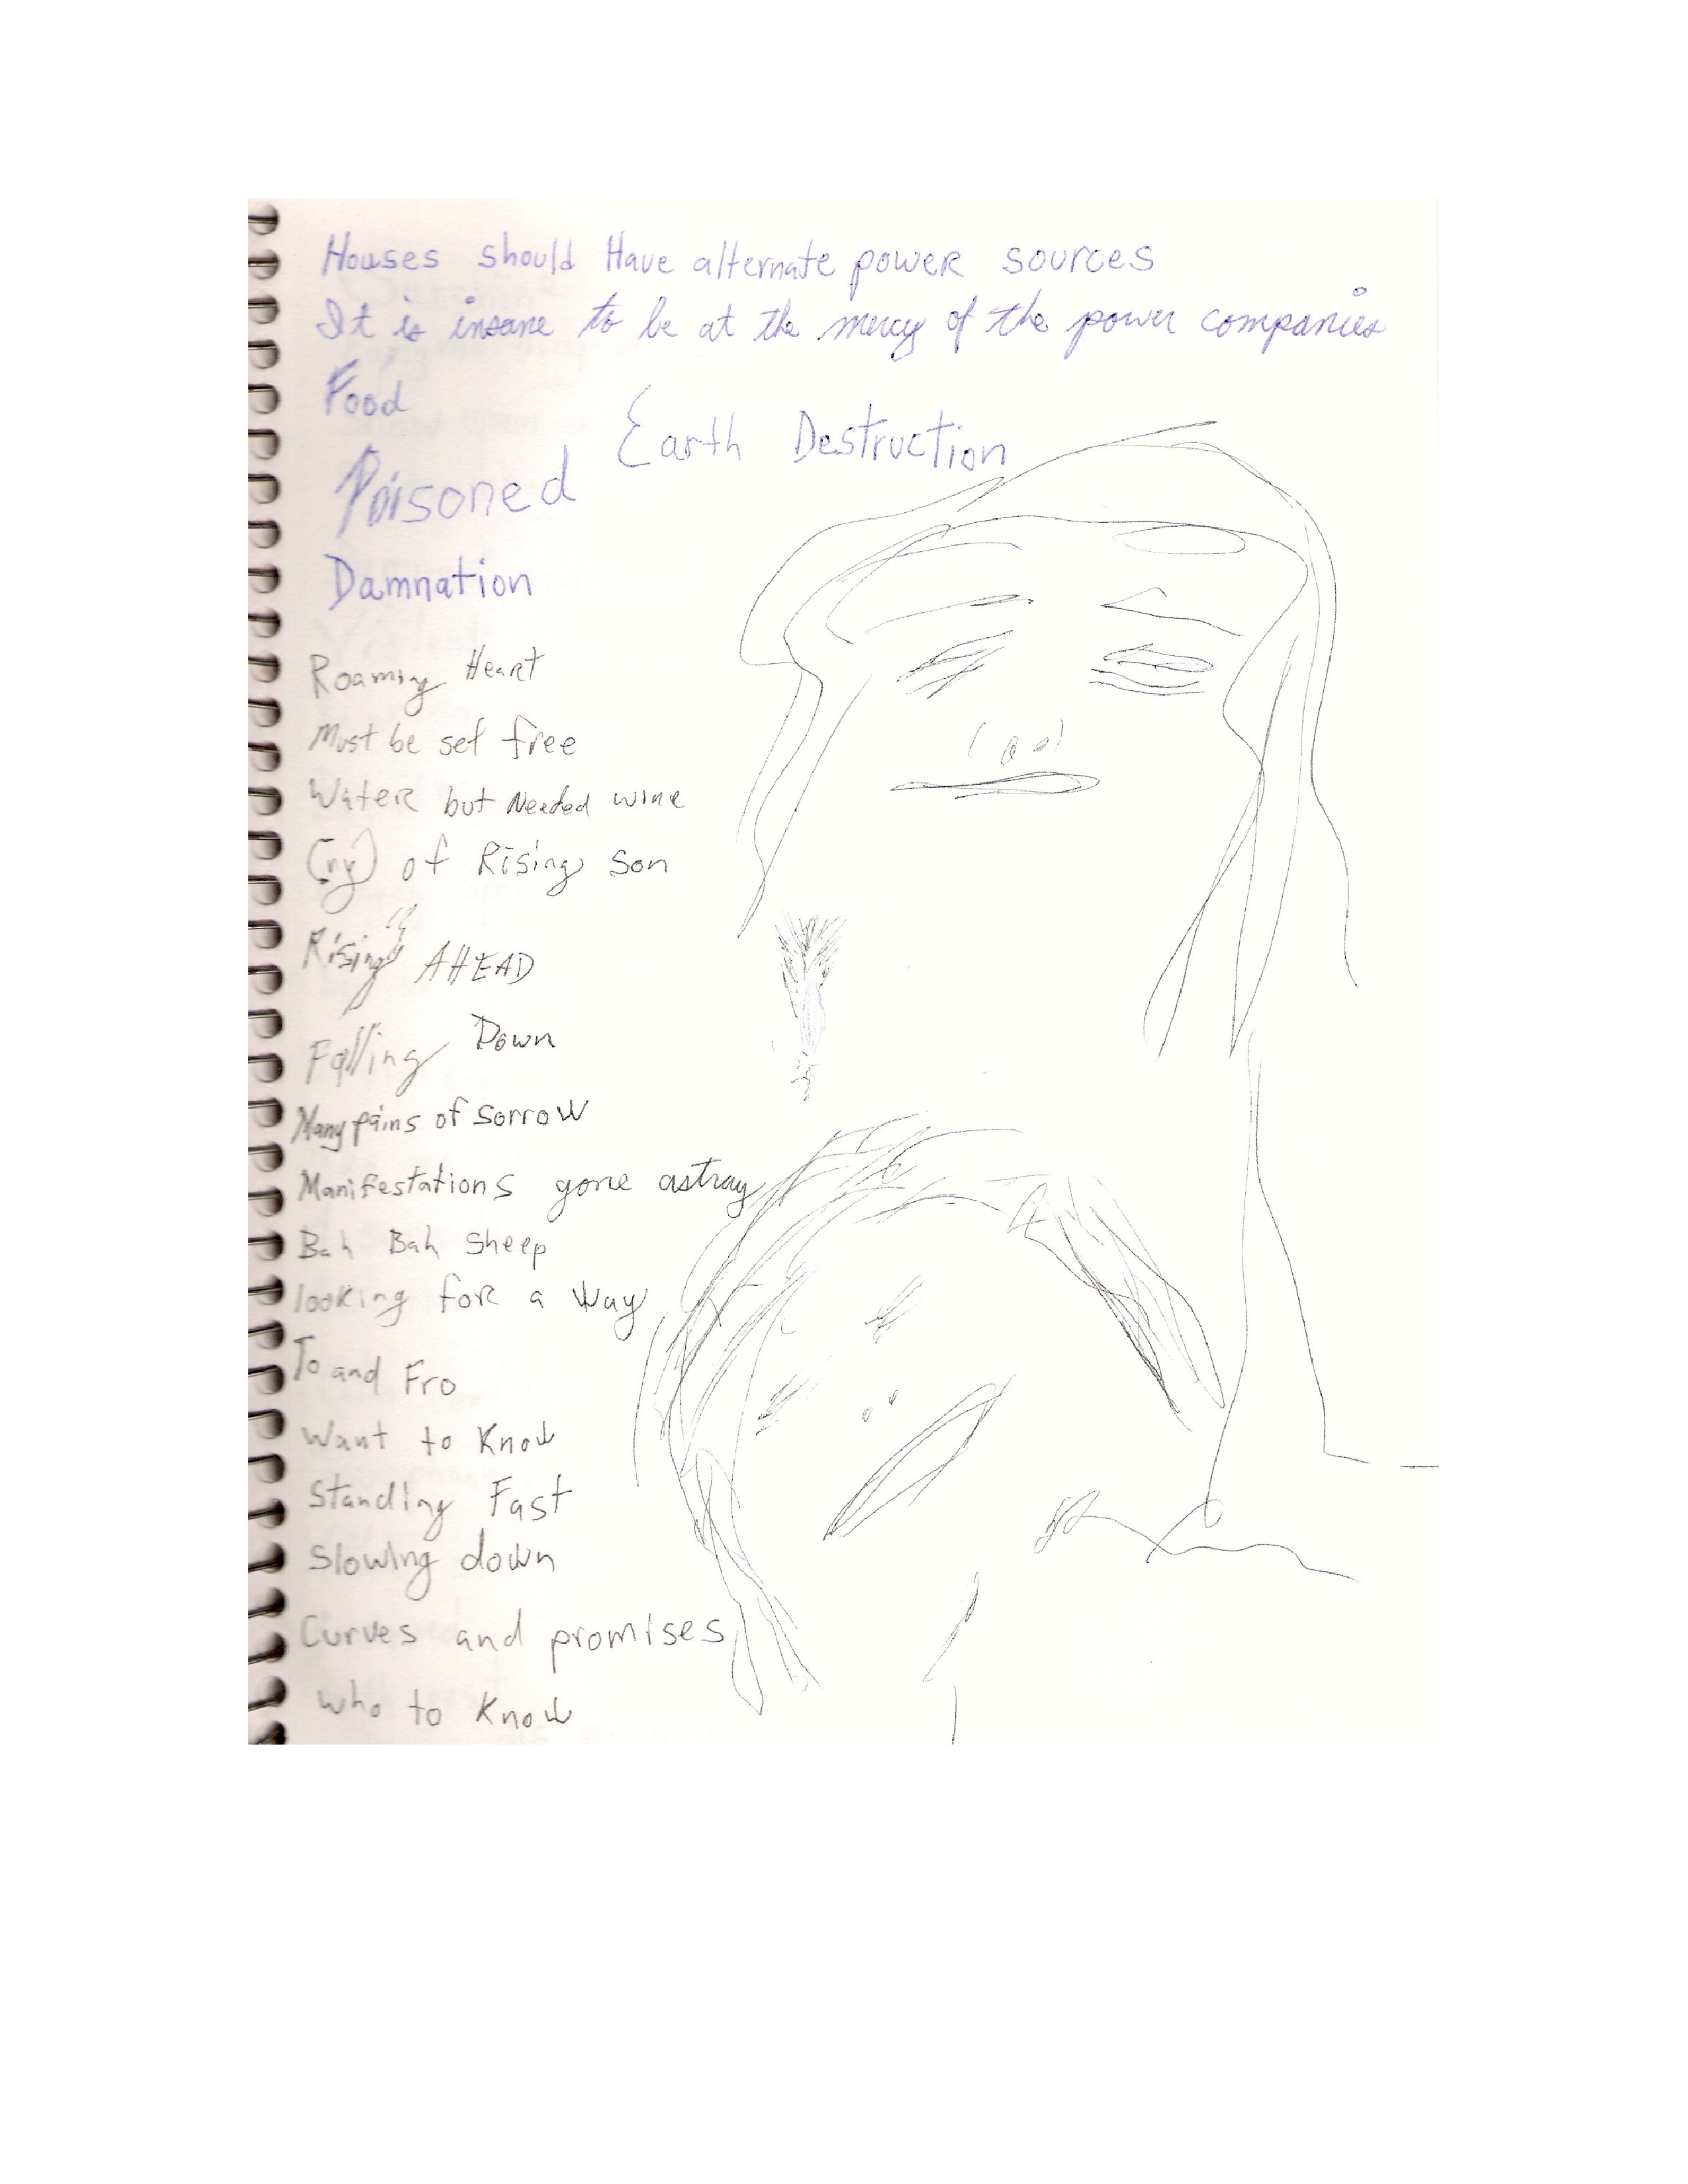 Houses should Have alternate power sources
It is insane to be at the mercy of the power companies
Food
Earth Destruction
Poisoned
Damnation
Roaming Heart
Must be set free
Water but Needed wine
of Rising Son
Rising AHEAD
Falling Down
Many pains of sorrow
Manifestations gone astray
Bah Bah Sheep
looking for a Way
To and Fro
Want to Know
Standing Fast
Slowing down
Curves and promises
who to Know